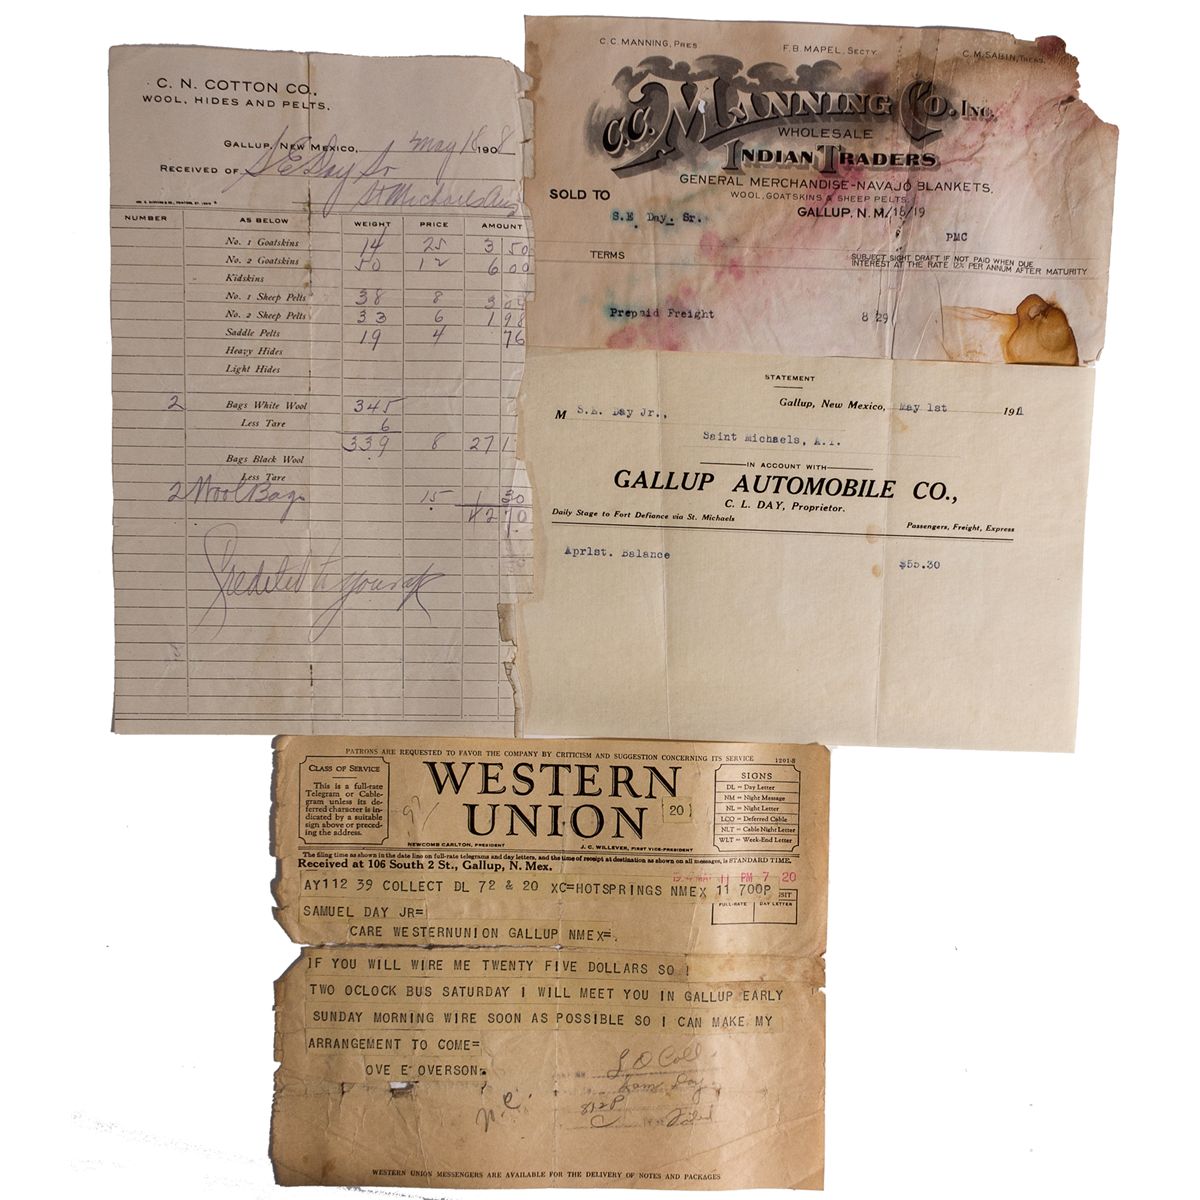 C. N. COTTON CO.,
WOOL, HIDES AND PELTS.
GALLUP, NEW MEXICO, May 18 1908
RECEIVED OF S E Day Sr
St Michaels
NUMBER AS BELOW WEIGHT PRICE AMOUNT
No. 1 Goatskins 14 25 3 50
No. 2 Goatskins 50 12 6 00
Kidskins
No. 1 Sheep Pelts 38 8 3 04
No. 2 Sheep Pelts 33 6 1 98
Saddle Pelts 19 4 76
Heavy Hides
Light Hides
2 Bags White Wool 345
Less Tare 6
339 8 27 1
Bags Black Wool
Less Tare
2 Wool Bags 15 30
42 70
Credited to your a/c
C. C. MANNING, PRES. F. B. MAPEL, SECTY. C. M. SABIN, TREAS.
C.C. MANNING CO. INC.
WHOLESALE
INDIAN TRADERS
GENERAL MERCHANDISE-NAVAJO BLANKETS,
WOOL, GOATSKINS & SHEEP PELTS.
SOLD TO
GALLUP, N. M. /15/19
S.E. Day. Sr.
PMC
TERMS
SUBJECT SIGHT DRAFT IF NOT PAID WHEN DUE
INTEREST AT THE RATE 12% PER ANNUM AFTER MATURITY
Prepaid Freight 8 29
STATEMENT
Gallup, New Mexico, May 1st 1911
M S.E. Day Jr.,
Saint Michaels, A.T.
IN ACCOUNT WITH
GALLUP AUTOMOBILE CO.,
C. L. DAY, Proprietor.
Daily Stage to Fort Defiance via St. Michaels Passengers, Freight, Express
Apr1st. Balance $55.30
PATRONS ARE REQUESTED TO FAVOR THE COMPANY BY CRITICISM AND SUGGESTION CONCERNING ITS SERVICE 1201-S
CLASS OF SERVICE
This is a full-rate
Telegram or Cable-
gram unless its de-
ferred character is in-
dicated by a suitable
sign above or preced-
ing the address.
WESTERN
UNION
20
SIGNS
DL = Day Letter
NM = Night Message
NL = Night Letter
LCO = Deferred Cable
NLT = Cable Night Letter
WLT = Week-End Letter
NEWCOMB CARLTON, PRESIDENT J. C. WILLEVER, FIRST VICE-PRESIDENT
The filing time as shown in the date line on full-rate telegrams and day letters, and the time of receipt at destination as shown on all messages, is STANDARD TIME.
Received at 106 South 2 St., Gallup, N. Mex.
11 PM 7 20
AY112 39 COLLECT DL 72 & 20 XC=HOTSPRINGS NMEX 11 700P
FULL-RATE DAY LETTER
SAMUEL DAY JR=
CARE WESTERNUNION GALLUP NMEX=.
IF YOU WILL WIRE ME TWENTY FIVE DOLLARS SO I
TWO OCLOCK BUS SATURDAY I WILL MEET YOU IN GALLUP EARLY
SUNDAY MORNING WIRE SOON AS POSSIBLE SO I CAN MAKE MY
ARRANGEMENT TO COME=
OVE E OVERSON.
Sam Day
812P
WESTERN UNION MESSENGERS ARE AVAILABLE FOR THE DELIVERY OF NOTES AND PACKAGES